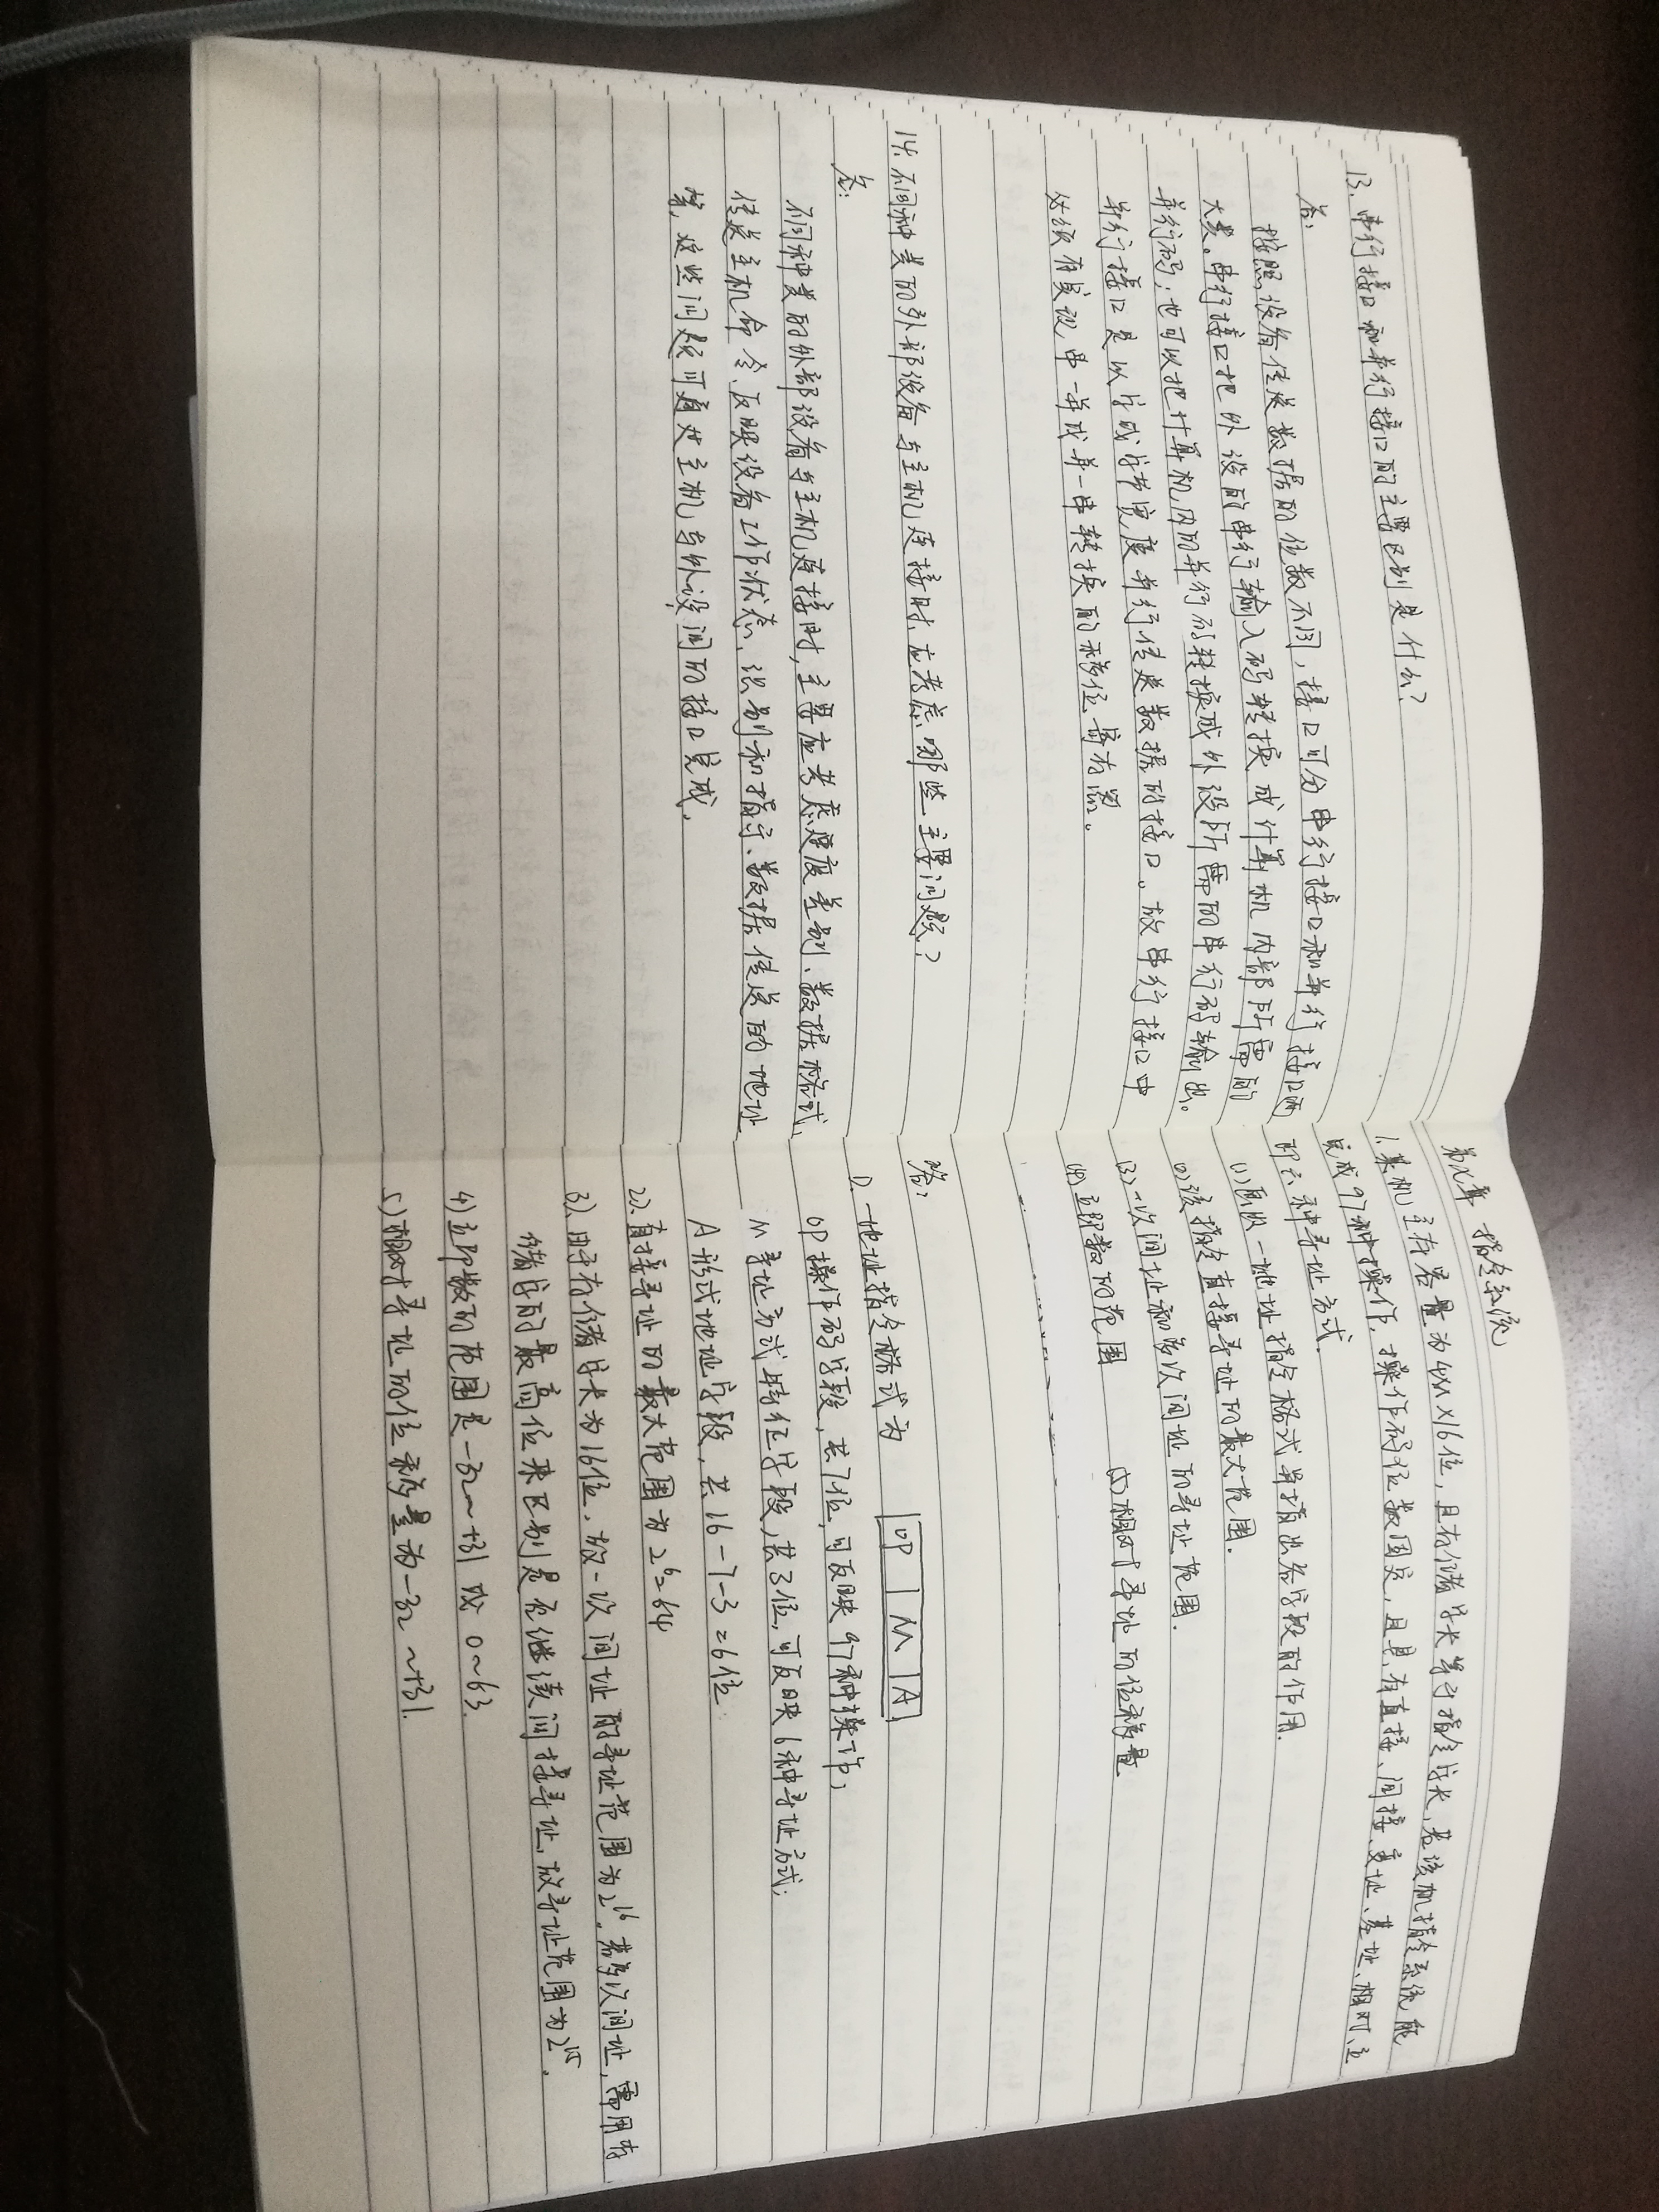 13. 串行接口和并行接口的主要区别是什么？
答：
按照设备传送数据的位数不同，接口可分串行接口和并行接口两
大类。串行接口把外设的串行输入码转换成计算机内部所需的
并行码；也可以把计算机内的并行码转换成外设所需的串行码输出。
并行接口是以字或字节宽度并行传送数据的接口。故串行接口中
必须有实现串—并或并—串转换的移位寄存器。
14. 不同种类的外部设备与主机连接时，应考虑哪些主要问题？
答：
不同种类的外部设备与主机连接时，主要应考虑速度差别、数据格式、
传送主机命令、反映设备工作状态、识别和指示、数据传送的地址
等，这些问题可通过主机与外设间的接口完成。
第六章 指令系统
1. 某机主存容量为4M×16位，且存储字长等于指令字长，若该机指令系统能
完成97种操作，操作码位数固定，且具有直接、间接、变址、基址、相对、立
即六种寻址方式.
(1) 画出一地址指令格式并指出各字段的作用.
(2) 该指令直接寻址的最大范围.
(3) 一次间址和多次间址的寻址范围.
(4) 立即数的范围 (5) 相对寻址的位移量
答：
1). 一地址指令格式为 OP M A
OP 操作码字段，共7位，可反映97种操作；
M 寻址方式特征字段，共3位，可反映6种寻址方式；
A 形式地址字段，共16-7-3=6位
2). 直接寻址的最大范围为2⁶=64
3). 由于存储字长为16位，故一次间址的寻址范围为2¹⁶，若多次间址，需用存
储字的最高位来区别是否继续间接寻址，故寻址范围为2¹⁵.
4) 立即数的范围是-32~+31 或 0~63
5) 相对寻址的位移量为-32~+31.